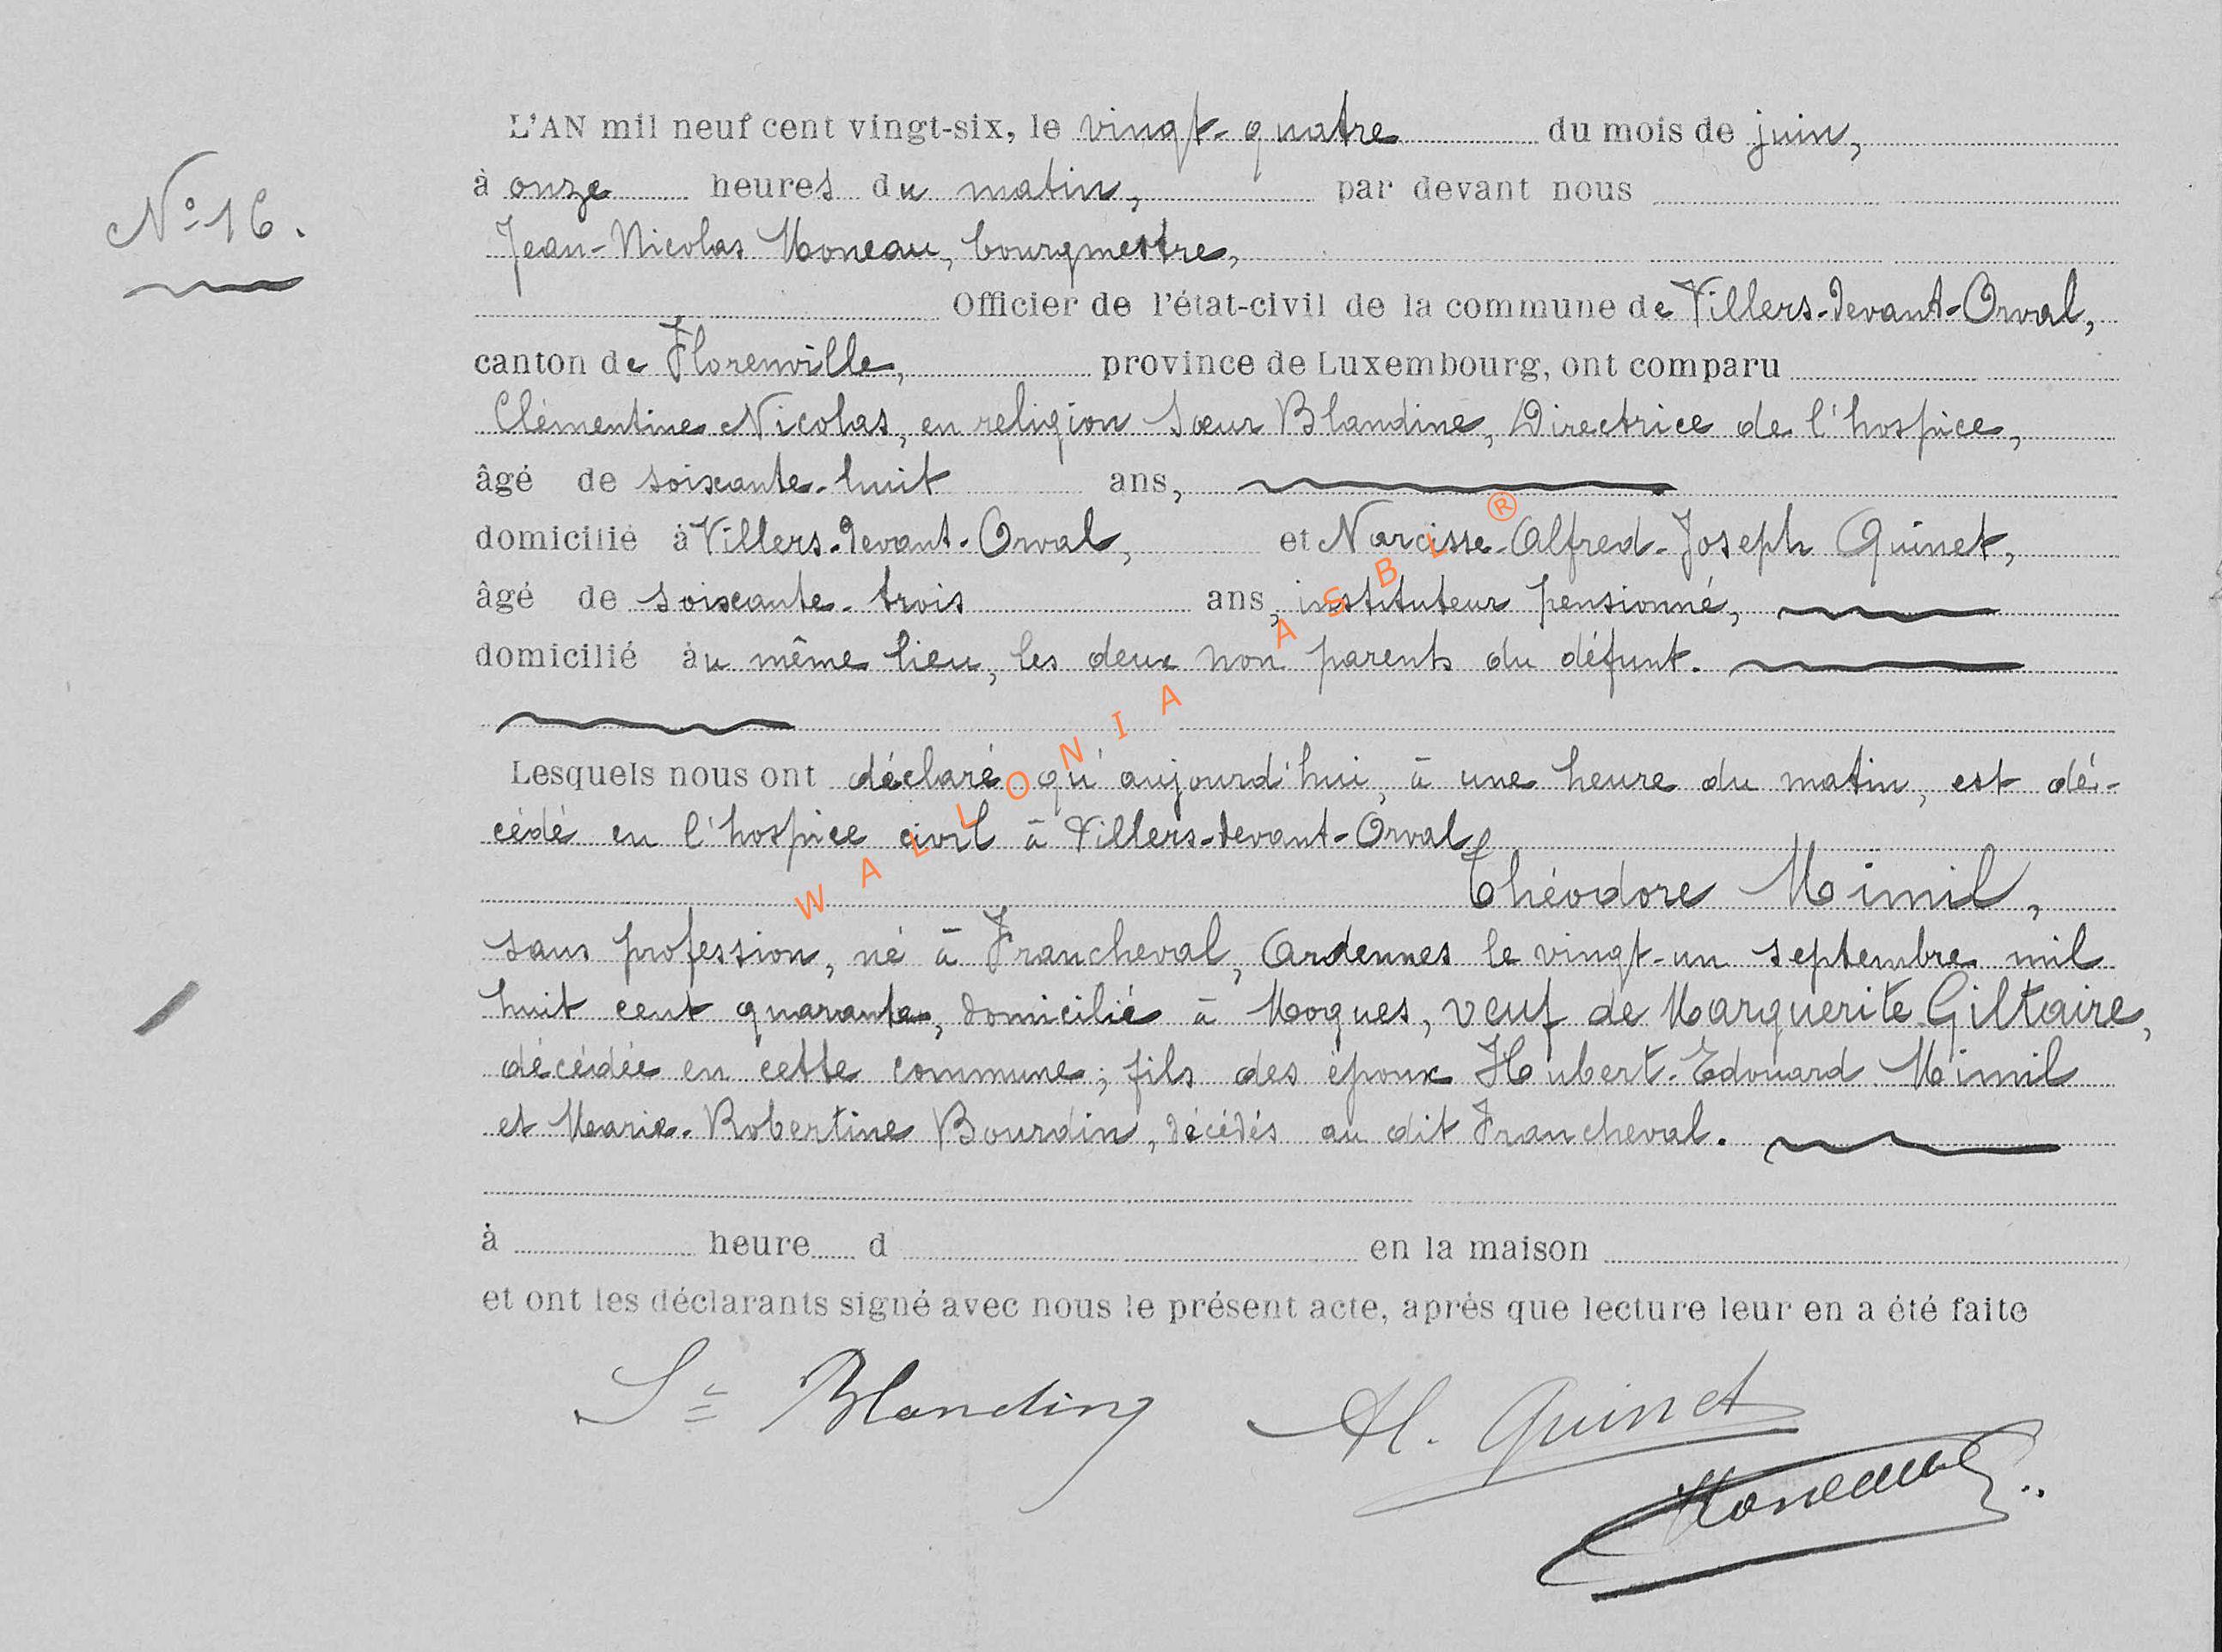 L'AN mil neuf cent vingt-six, le vingt-quatre du mois de juin,
à onze heures du matin, par devant nous
N° 16.
Jean-Nicolas Moneau, bourgmestre,
Officier de l'état-civil de la commune de Villers-devant-Orval,
canton de Florenville, province de Luxembourg, ont comparu
Clémentine Nicolas, en religion Sœur Blandine, Directrice de l'hospice,
âgé de soixante-huit ans,
domicilié à Villers-devant-Orval, et Narcisse-Alfred-Joseph Quinet,
âgé de soixante-trois ans, instituteur pensionné,
domicilié àu même lieu, les deux non parents du défunt.
Lesquels nous ont déclaré qu'aujourd'hui, à une heure du matin, est dé-
cédé en l'hospice civil à Villers-devant-Orval
Théodore Mimil,
sans profession, né à Francheval, Ardennes le vingt-un septembre mil
huit cent quarante, domicilié à Mogues, veuf de Marguerite Giltaire,
décédée en cette commune; fils des époux Hubert-Edouard Mimil
et Marie-Robertine Bourdin, décédés au dit Francheval.
à heure d en la maison
et ont les déclarants signé avec nous le présent acte, après que lecture leur en a été faite
Sr Blandine Al. Quinet
Moneau
WALLONIA ASBL ®